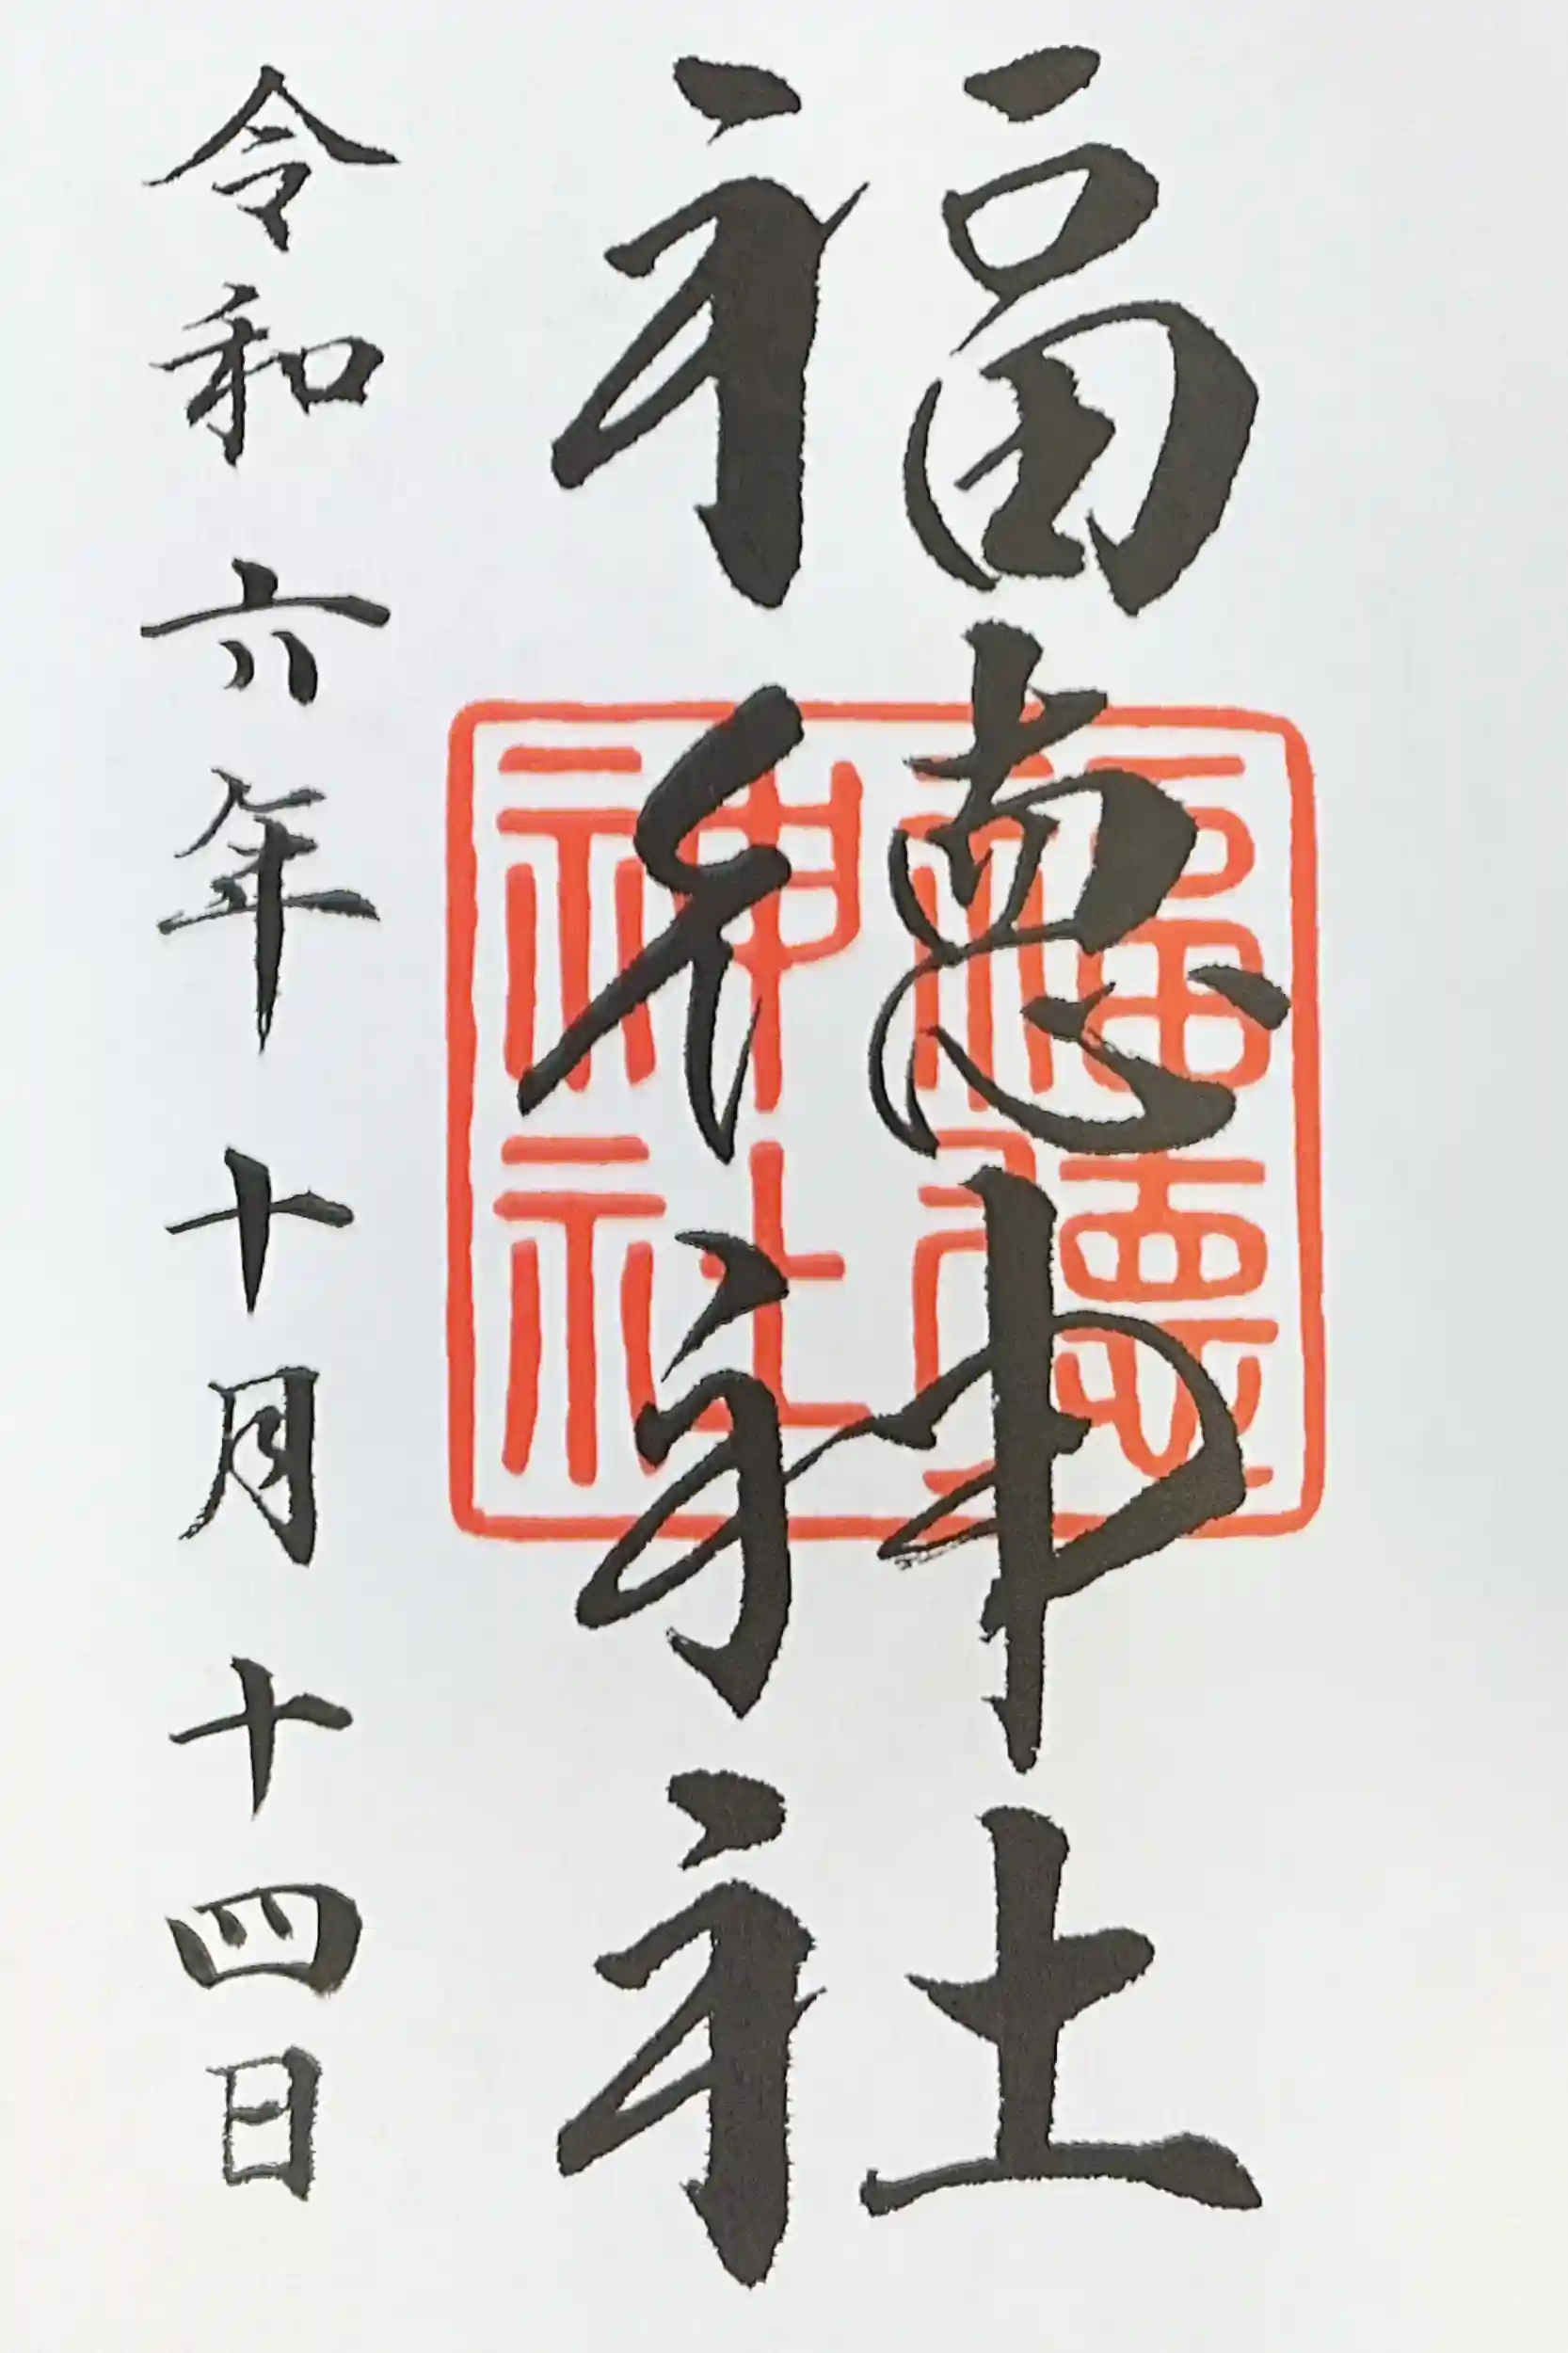 福徳神社
令和六年十月十四日
福徳
神社